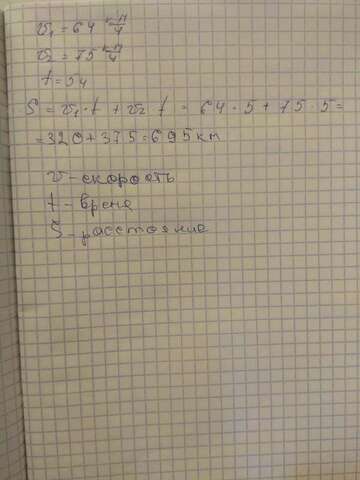 v₁ = 64 км/ч
v₂ = 75 км/ч
t = 5ч
S = v₁·t + v₂ t = 64·5 + 75·5 =
= 320 + 375 = 695 км
v - скорость
t - время
S - расстояние